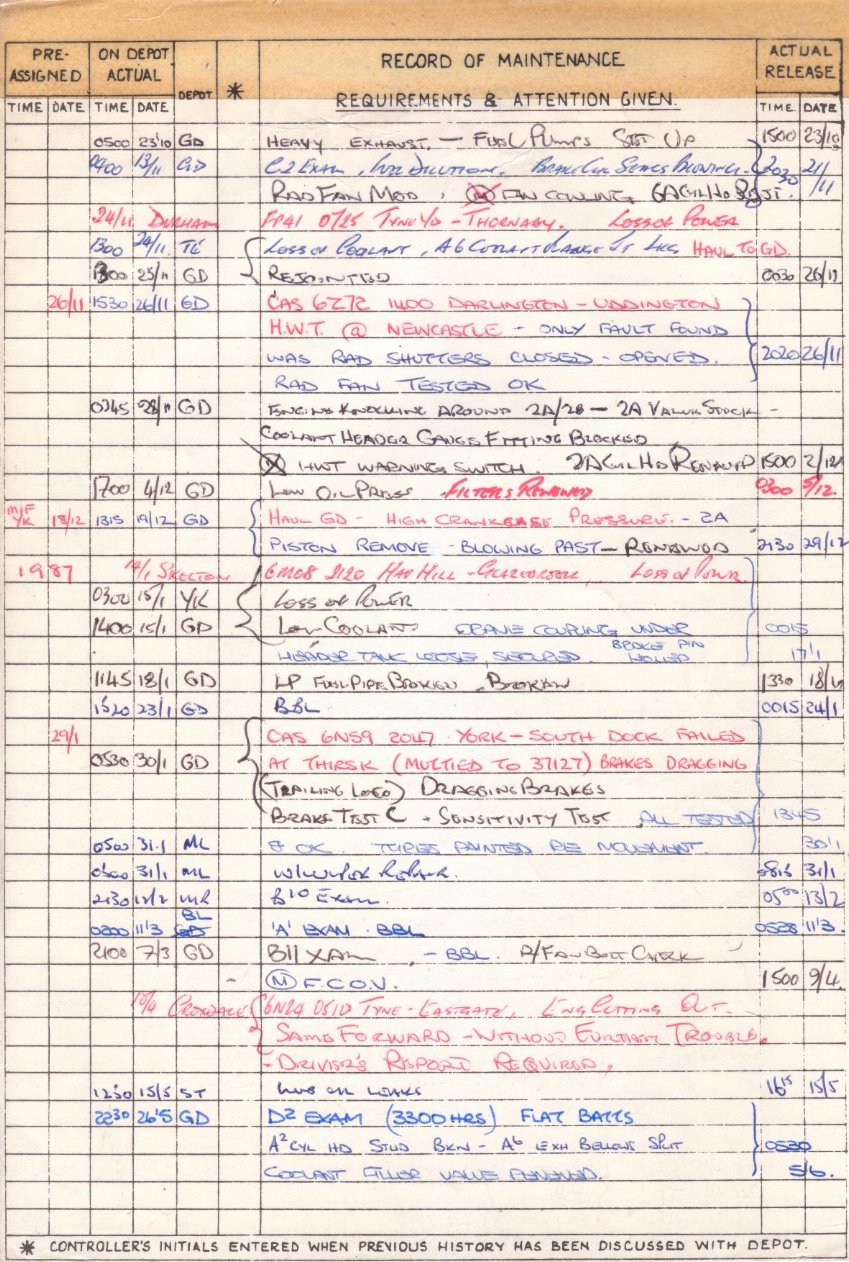 PRE-ASSIGNED ON DEPOT ACTUAL DEPOT * RECORD OF MAINTENANCE REQUIREMENTS & ATTENTION GIVEN. ACTUAL RELEASE
TIME DATE TIME DATE TIME DATE
0500 23/10 GD HEAVY EXHAUST. — FUEL PUMPS SET UP 1500 23/10
0900 13/11 GD C2 EXAM, DILUTION. BRAKE CYL BLOWING. 2030 21/11
RAD FAN MOD. M FAN COWLING, 6A CYL HD
24/11 DURHAM FP41 0725 TYNE YD - THORNABY. LOSS OF POWER
1300 24/11 TE LOSS OF COOLANT, A6 COOLANT HAUL TO GD.
1300 25/11 GD REJOINTED 0030 26/11
26/11 1530 26/11 GD CAS 6Z72 1400 DARLINGTON - UDDINGTON
H.W.T. @ NEWCASTLE - ONLY FAULT FOUND
WAS RAD SHUTTERS CLOSED - OPENED. 2020 26/11
RAD FAN TESTED OK
0245 28/11 GD ENGINE KNOCKING AROUND 2A/2B — 2A VALVE STUCK -
COOLANT HEADER GAUGE FITTING BLOCKED
M HWT WARNING SWITCH. 2A CYL HD RENEWED 1500 2/12
1700 4/12 GD LOW OIL PRESS FILTERS RENEWED 0300 5/12.
YK 18/12 1315 19/12 GD HAUL GD - HIGH CRANKCASE PRESSURE. - 2A
PISTON REMOVE - BLOWING PAST — RENEWED 2130 29/12
1987 14/1 SKELTON 6M68 2120 HAV HILL - GLAZEBROOK, LOSS OF POWER.
0300 15/1 YK LOSS OF POWER
1400 15/1 GD LOW COOLANT COUPLING UNDER 0015
HEADER TANK LOOSE, SECURED. BRAKE PIN 17/1
1145 18/1 GD LP FUEL PIPE BROKEN. 1330 18/1
1520 23/1 GD BBL 0015 24/1
29/1 CAS 6N59 2047 YORK - SOUTH DOCK FAILED
0530 30/1 GD AT THIRSK (MULTIED TO 37127) BRAKES DRAGGING
(TRAILING LOCO) DRAGGING BRAKES
BRAKE TEST C + SENSITIVITY TEST ALL TESTED 1345
0500 31.1 ML & OK. TYRES PAINTED RE MOVEMENT. 30/1
31/1 ML REPAIR. 31/1
2130 MR B10 EXAM. 0500 13/2
BL
0200 11'3 'A' EXAM BBL 0528 11'3.
2100 7/3 GD B11 XAM, - BBL. R/FAN BOLT CHECK
M F.C.O.V. 1500 9/4.
10/4 CROXDALE 6N24 0510 TYNE - EASTGATE, ENG CUTTING OUT.
SAME FORWARD - WITHOUT FURTHER TROUBLE.
- DRIVER'S REPORT REQUIRED.
1230 15/5 ST LUB OIL LEAKS 1615 15/5
2230 26'5 GD D2 EXAM (3300 HRS) FLAT BATTS
A2 CYL HD STUD BKN - A6 EXH BELLOWS SPLIT 0530
COOLANT FILLER VALVE RENEWED. 5/6.
* CONTROLLER'S INITIALS ENTERED WHEN PREVIOUS HISTORY HAS BEEN DISCUSSED WITH DEPOT.